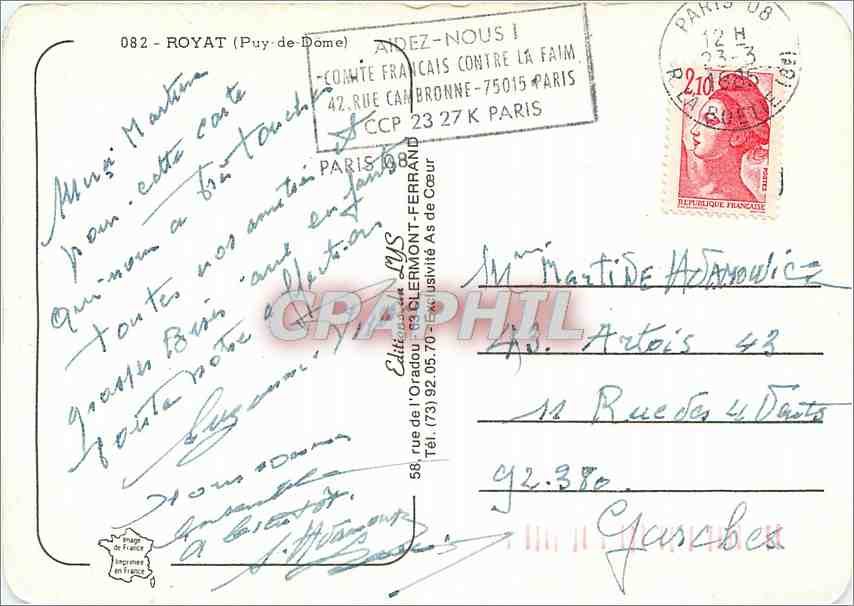 082 - ROYAT (Puy-de-Dôme)
AIDEZ-NOUS !
COMITE FRANCAIS CONTRE LA FAIM
42.RUE CAMBRONNE-75015 PARIS
CCP 23 27 K PARIS
PARIS 08
PARIS 08
12 H
23-3
R LA BOETIE (8E)
2,10
POSTES
REPUBLIQUE FRANÇAISE
Merci Martine
pour cette carte
qui nous a très touchés
toutes nos amitiés et
grosses Bises aux enfants
toute notre affection
Suzanne
Nous serons
ensemble
a bientôt.
Editions du LYS
58, rue de l'Oradou - 63 CLERMONT-FERRAND
Tél. (73) 92.05.70 - Exclusivité As de Cœur
CARTAPHIL
Mme MartiNE ADAMOWICZ
43. Artois 43
11 Rue des 4 Vents
92.380.
Garches
Image
de France
Imprimée
en France